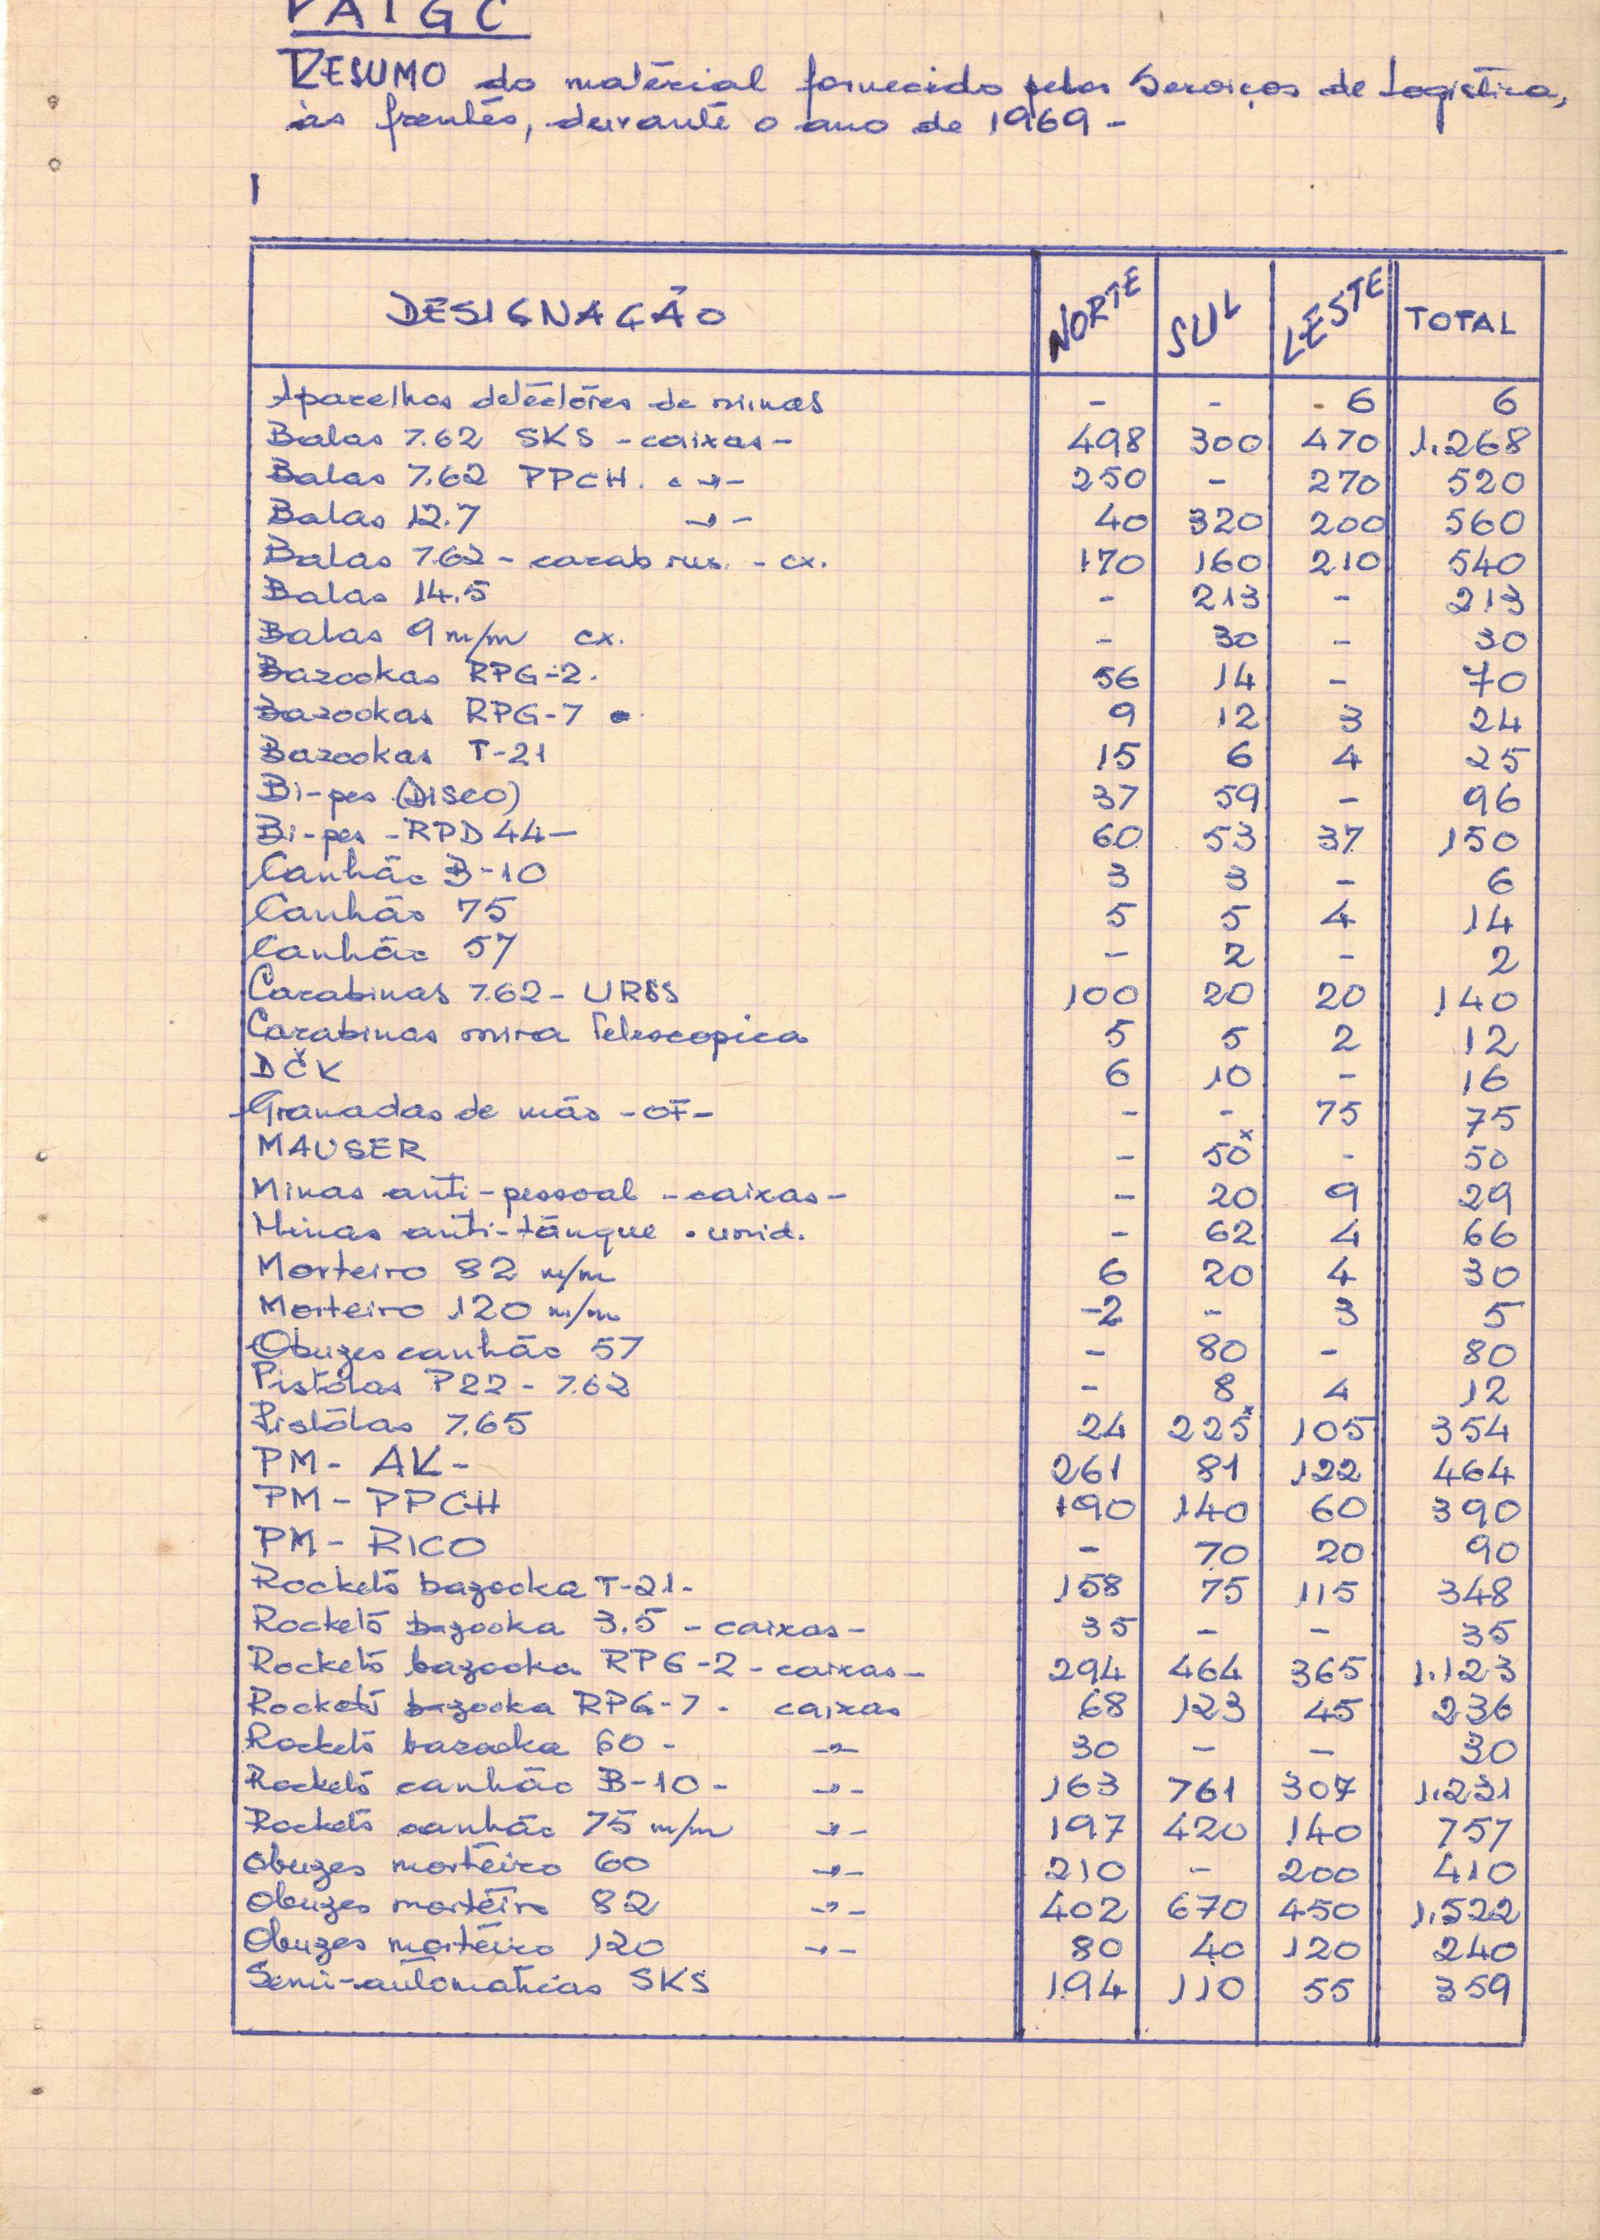 PAIGC
RESUMO do material fornecido pelos Serviços de Logística,
às frentes, durante o ano de 1969 -
I
DESIGNAÇÃO NORTE SUL LESTE TOTAL
Aparelhos detectôres de minas - - 6 6
Balas 7.62 SKS - caixas - 498 300 470 1.268
Balas 7.62 PPCH. " - 250 - 270 520
Balas 12.7 -"- 40 320 200 560
Balas 7.62 - carab rus. - cx. 170 160 210 540
Balas 14.5 - 213 - 213
Balas 9 m/m cx. - 30 - 30
Bazookas RPG-2. 56 14 - 70
Bazookas RPG-7 9 12 3 24
Bazookas T-21 15 6 4 25
Bi-pes (DISCO) 37 59 - 96
Bi-pes - RPD 44 - 60 53 37 150
Canhão B-10 3 3 - 6
Canhão 75 5 5 4 14
Canhão 57 - 2 - 2
Carabinas 7.62 - URSS 100 20 20 140
Carabinas mira Telescopica 5 5 2 12
DČK 6 10 - 16
Granadas de mão - OF - - - 75 75
MAUSER - 50x - 50
Minas anti-pessoal - caixas - - 20 9 29
Minas anti-tânque . unid. - 62 4 66
Morteiro 82 m/m 6 20 4 30
Morteiro 120 m/m -2 - 3 5
Obuzes canhão 57 - 80 - 80
Pistólas P22 - 7.62 - 8 4 12
Pistólas 7.65 24 225x 105 354
PM - AK - 261 81 122 464
PM - PPCH 190 140 60 390
PM - RICO - 70 20 90
Rockets bazooka T-21 - 158 75 115 348
Rockets bazooka 3.5 - caixas - 35 - - 35
Rockets bazooka RPG-2 - caixas - 294 464 365 1.123
Rockets bazooka RPG-7 - caixas 68 123 45 236
Rockets bazooka 60 - -"- 30 - - 30
Rockets canhão B-10 - -"- 163 761 307 1.231
Rockets canhão 75 m/m -"- 197 420 140 757
Obuzes morteiro 60 -"- 210 - 200 410
Obuzes morteiro 82 -"- 402 670 450 1.522
Obuzes morteiro 120 -"- 80 40 120 240
Semi-automaticas SKS 194 110 55 359